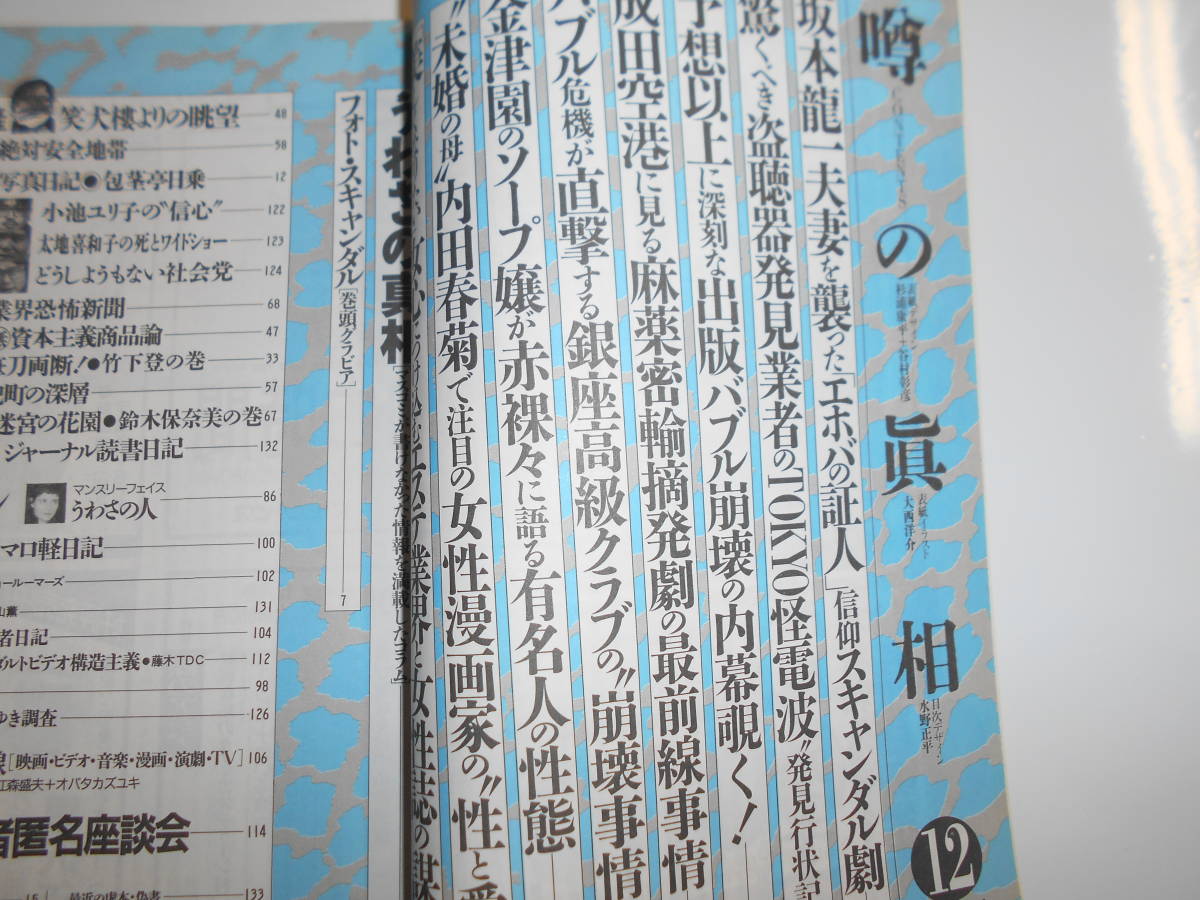 噂の眞相
CONTENTS
表紙デザイン
杉浦康平+谷村彰彦
表紙イラスト
大西洋介
目次デザイン
水野正平
12
坂本龍一夫妻を襲った「エホバの証人」信仰スキャンダル劇
驚くべき盗聴器発見業者のTOKYO怪電波〟発見行状記
予想以上に深刻な出版バブル崩壊の内幕覗く!
成田空港に見る麻薬密輸摘発劇の最前線事情
バブル危機が直撃する銀座高級クラブの〝崩壊事情
金津園のソープ嬢が赤裸々に語る有名人の性態
〝未婚の母〟内田春菊で注目の女性漫画家の〝性と愛
エステ業界に女性誌の
うわさの真相[マスコミが書けなかった情報を満載したコラム]
フォト・スキャンダル[巻頭グラビア] 7
笑犬樓よりの眺望 48
絶対安全地帯 58
写真日記●包茎亭日乗 12
小池ユリ子の〝信心〟 122
太地喜和子の死とワイドショー 123
どうしようもない社会党 124
業界恐怖新聞 68
資本主義商品論 47
刀両断!●竹下登の巻 33
町の深層 57
迷宮の花園●鈴木保奈美の巻 67
ジャーナル読書日記 132
マンスリーフェイス
うわさの人 86
マロ軽日記 100
ールーマーズ 102
山薫 131
者日記 104
ダルトビデオ構造主義●藤木TDC 112
98
ゆき調査 126
線[映画・ビデオ・音楽・漫画・演劇・TV] 106
紅森盛夫+オバタカズユキ
者匿名座談会 114
133